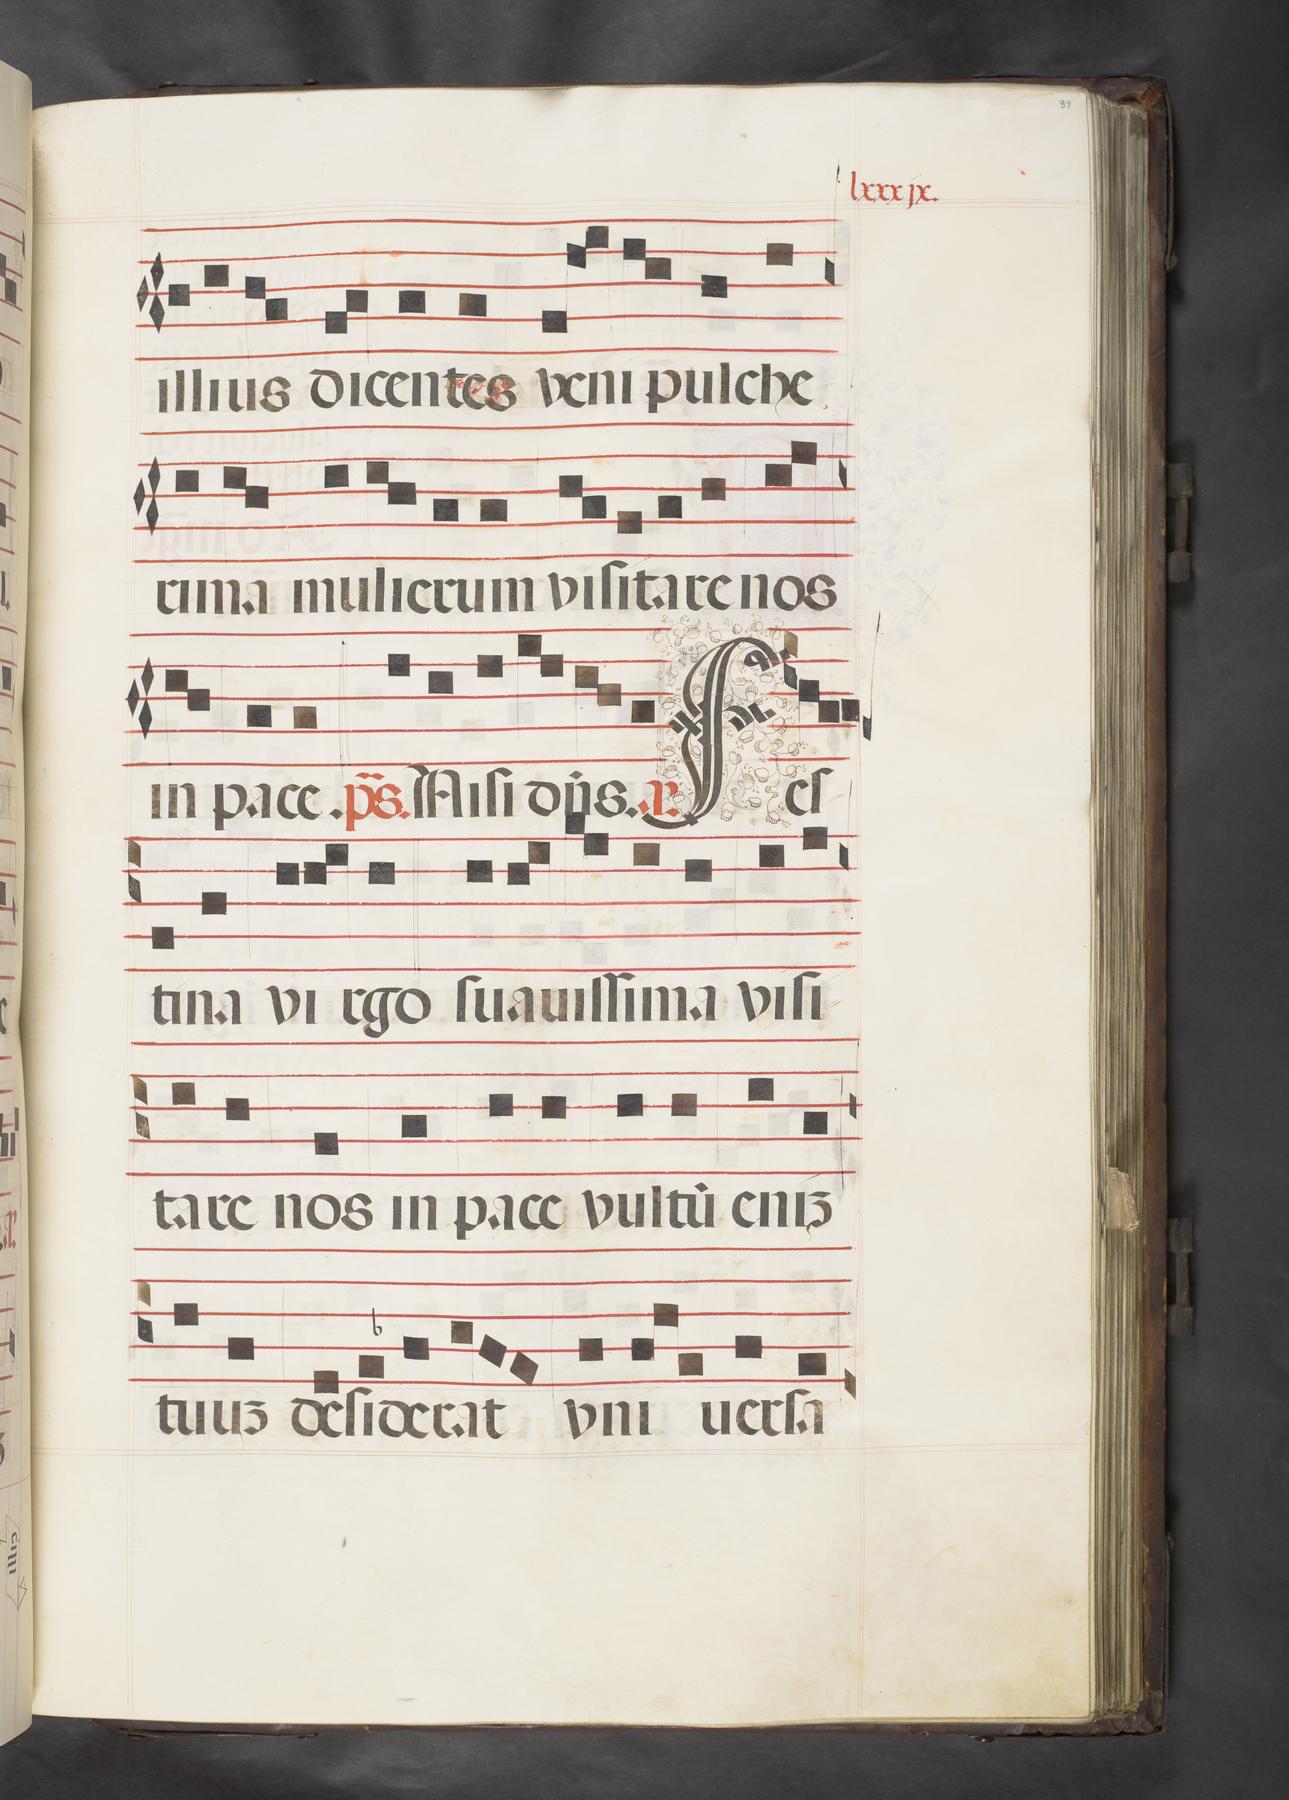 89
lxxxjx.
illius dicentes veni pulche
rima mulierum visitare nos
in pace . p̄s. Nisi dn̄s. A. F es
tina vi rgo suauissima visi
tare nos in pace vultū eniȝ
b
tuuȝ desiderat vni uersa